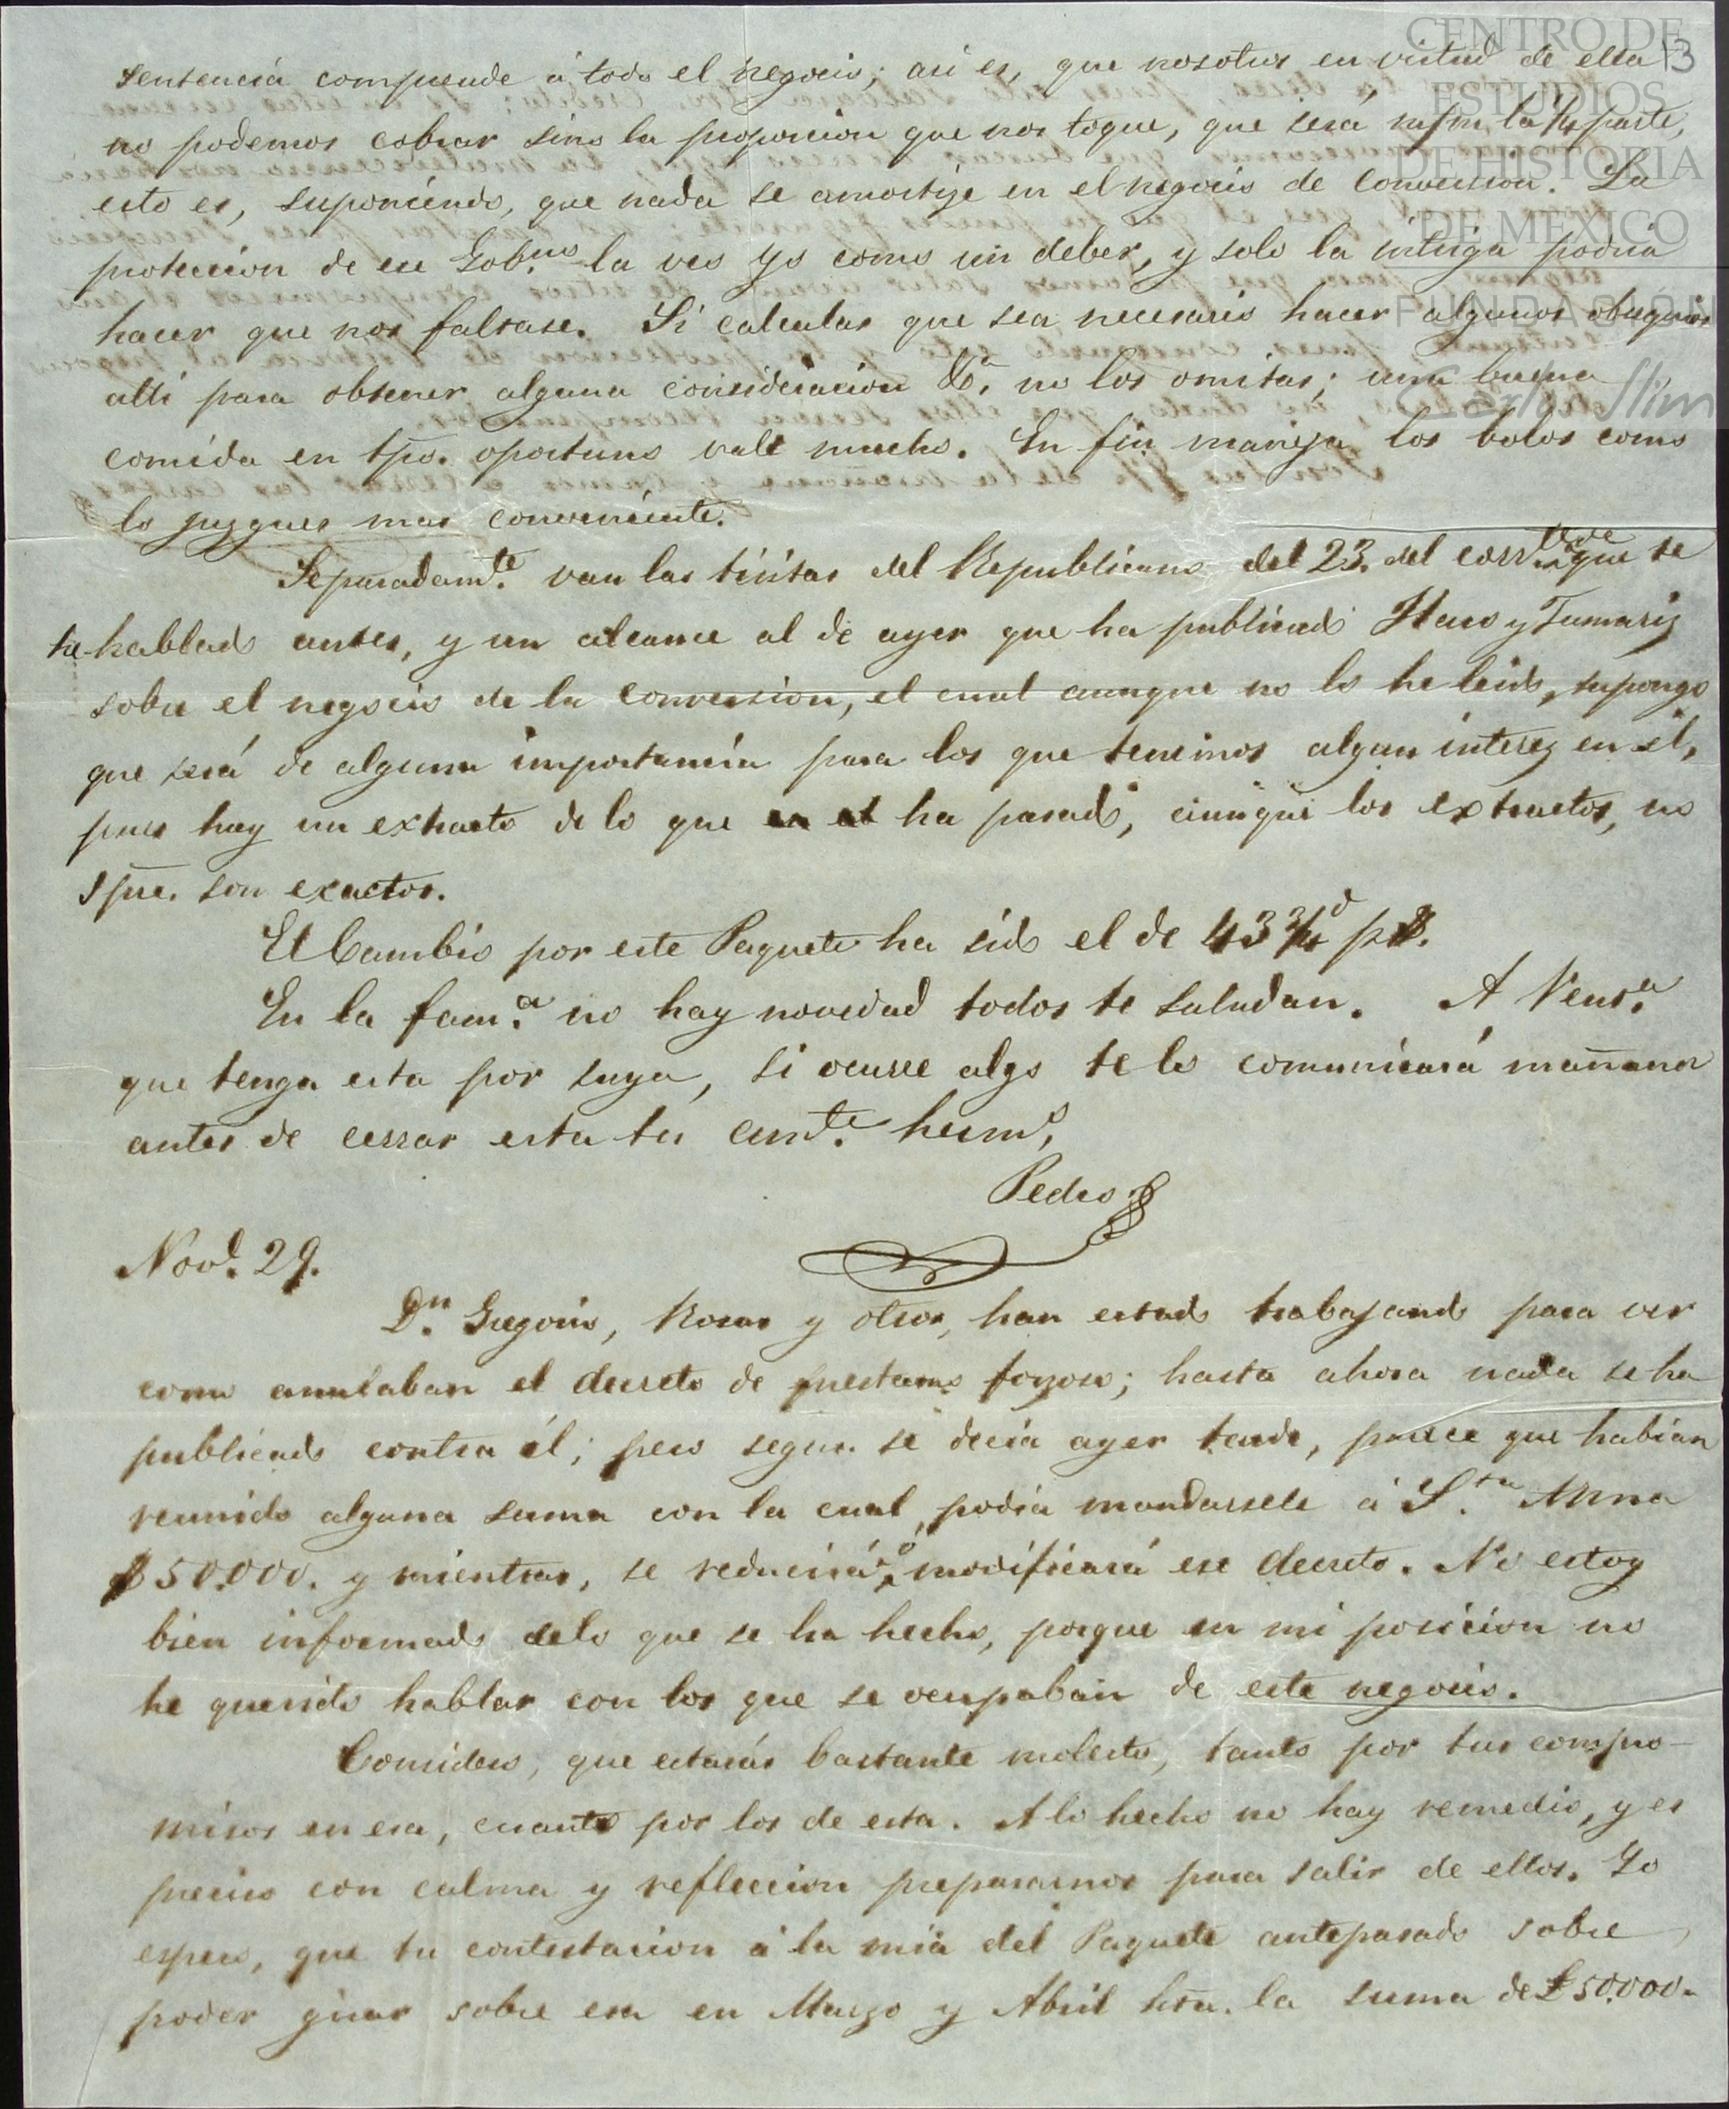 CENTRO DE
ESTUDIOS
DE HISTORIA
DE MÉXICO
FUNDACIÓN
Carlos Slim
13
sentencia comprende á todo el negocio; asi es, que nosotros en virtud de ella
no podemos cobrar sino la proporcion que nos toque, que será la ¼ parte,
esto es, suponiendo, que nada se amortize en el negocio de conversion. La
proteccion de ese Gob.no la veo yo como un deber, y solo la intriga podria
hacer que nos faltase. Si calculas que sea necesario hacer algunos obsequios
alli para obtener alguna consideracion &a. no los omitas; una buena
comida en tpo. oportuno vale mucho. En fin maneja los bolos como
lo juzgues mas conveniente.
Separadam.te van las tiritas del Republicano del 23. del corr.te de que te
he hablado antes, y un alcance al de ayer que ha publicado Haro y Tamariz
sobre el negocio de la conversion, el cual aunque no lo he leido, supongo
que será de alguna importancia para los que tenemos algun interez en él,
pues hay un extracto de lo que ha pasado, aunque los extractos, no
spre. son exactos.
El Cambio por este Paquete ha sido el de 43 ¾ d p$.
En la fam.a no hay novedad todos te saludan. A Vent.a
que tenga esta por suya, si ocurre algo te lo comunicará mañana
antes de cerrar esta tu am.te herm.o
Pedro
Nov.e 29.
D.n Gregorio, Rosas y otros, han estado trabajando para ver
como anulaban el decreto de prestamo forzoso; hasta ahora nada se ha
publicado contra él; pero segun se decia ayer tarde, parece que habian
reunido alguna suma con la cual, podia mandarsele á S.ta Anna
$50.000. y mientras, se reducirá, o modificará ese decreto. No estoy
bien informado delo que se ha hecho, porque en mi posicion no
he querido hablar con los que se ocupaban de este negocio.
Considero, que estarás bastante molesto, tanto por tus compro-
misos en esa, cuanto por los de esta. A lo hecho no hay remedio, y es
preciso con calma y refleccion prepararnos para salir de ellos. Yo
espero, que tu contestacion á la mia del Paquete antepasado sobre
poder girar sobre esa en Marzo y Abril hta. la suma de £50.000.